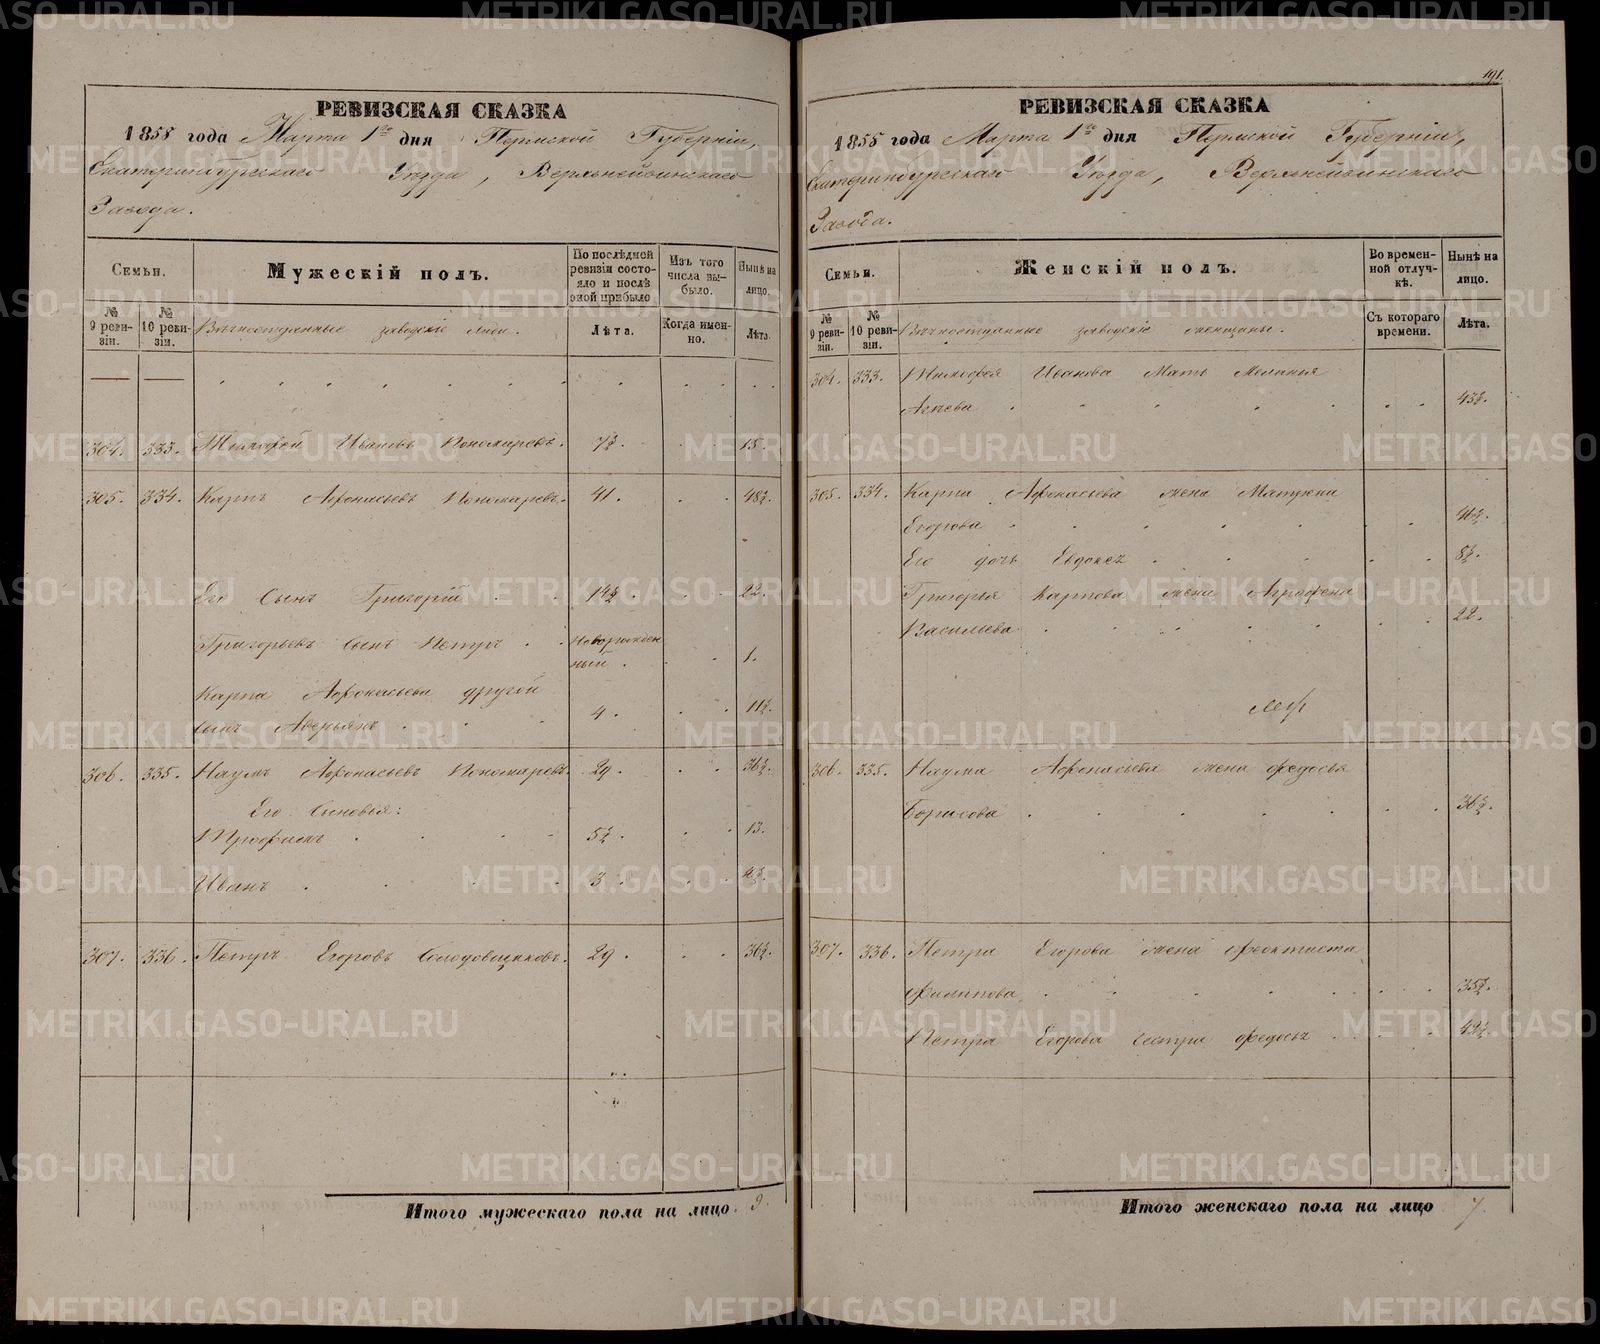 РЕВИЗСКАЯ СКАЗКА
1855 года Марта 1го дня Пермской Губерніи,
Екатеринбургскаго Уѣзда, Верхнейвинскаго
Завода.
Семьи.
Мужескій полъ.
По послѣдней ревизіи состояло и послѣ оной прибыло
Изъ того числа выбыло.
Нынѣ на лицо.
№ 9 ревизіи.
№ 10 ревизіи.
заводскіе люди.
Лѣта.
Когда именно.
Лѣта.
304. 333. Тимофей Ивановъ Пономаревъ. 7½. 15.
305. 334. Карпъ Афонасьевъ Пономаревъ. 41. 48½.
Его Сынъ Григорій 14½. 22.
Григорьевъ сынъ Петръ Новорожденный. 1.
Карпа Афонасьева другой
сынъ Аверьянъ 4. 11½.
306. 335. Наумъ Афонасьевъ Пономаревъ. 29. 36½.
Его Сыновья:
1 Трофимъ 5½. 13.
Иванъ 3.
307. 336. Петръ Егоровъ Солодовщиковъ. 29. 36½.
Итого мужескаго пола на лицо 9.
191.
РЕВИЗСКАЯ СКАЗКА
1855 года Марта 1го дня Пермской Губерніи,
Екатеринбургскаго Уѣзда, Верхнейвинскаго
Завода.
Семьи.
Женскій полъ.
Во временной отлучкѣ.
Нынѣ на лицо.
№ 9 ревизіи.
№ 10 ревизіи.
заводскіе женщины.
Съ котораго времени.
Лѣта.
304. 333. Тимофея Иванова Мать Меланья
43½.
305. 334. Карпа Афонасьева жена Матрена
Егорова 46½.
Его дочь Евдокея 8½.
Григорья Карпова жена Аграфена
Васильева 22.
306. 335. Наума Афонасьева жена Федосья
Борисова 36½.
307. 336. Петра Егорова жена Феоктиста
Филипова 35½.
Петра Егорова сестра Федосья 49½.
Итого женскаго пола на лицо 7
METRIKI.GASO-URAL.RU